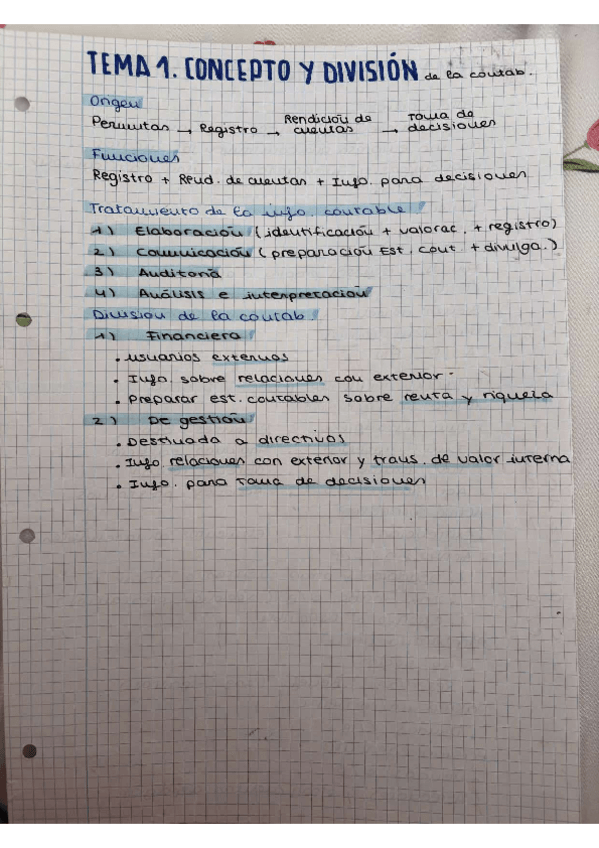 TEMA 1. CONCEPTO Y DIVISIÓN de la contab.
Origen
Permutas → Registro → Rendición de cuentas → Toma de decisiones
Funciones
Registro + Rend. de cuentas + Info. para decisiones
Tratamiento de la info. contable
1) Elaboración (identificación + valorac. + registro)
2) Comunicación (preparación Est. cont + divulga.)
3) Auditoría
4) Análisis e interpretación
División de la contab.
1) Financiera
. usuarios externos
. Info. sobre relaciones con exterior.
. Preparar est. contables sobre renta y riqueza
2) De gestión
. Destinada a directivos
. Info relaciones con exterior y trans. de valor interna
. Info. para Toma de decisiones